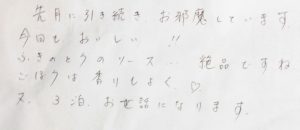 先月に引き続き、お邪魔しています。
今回もおいしい!!
ふきのとうのソース… 絶品ですね
ごぼうは香りもよく、♡
又、3泊、お世話になります。